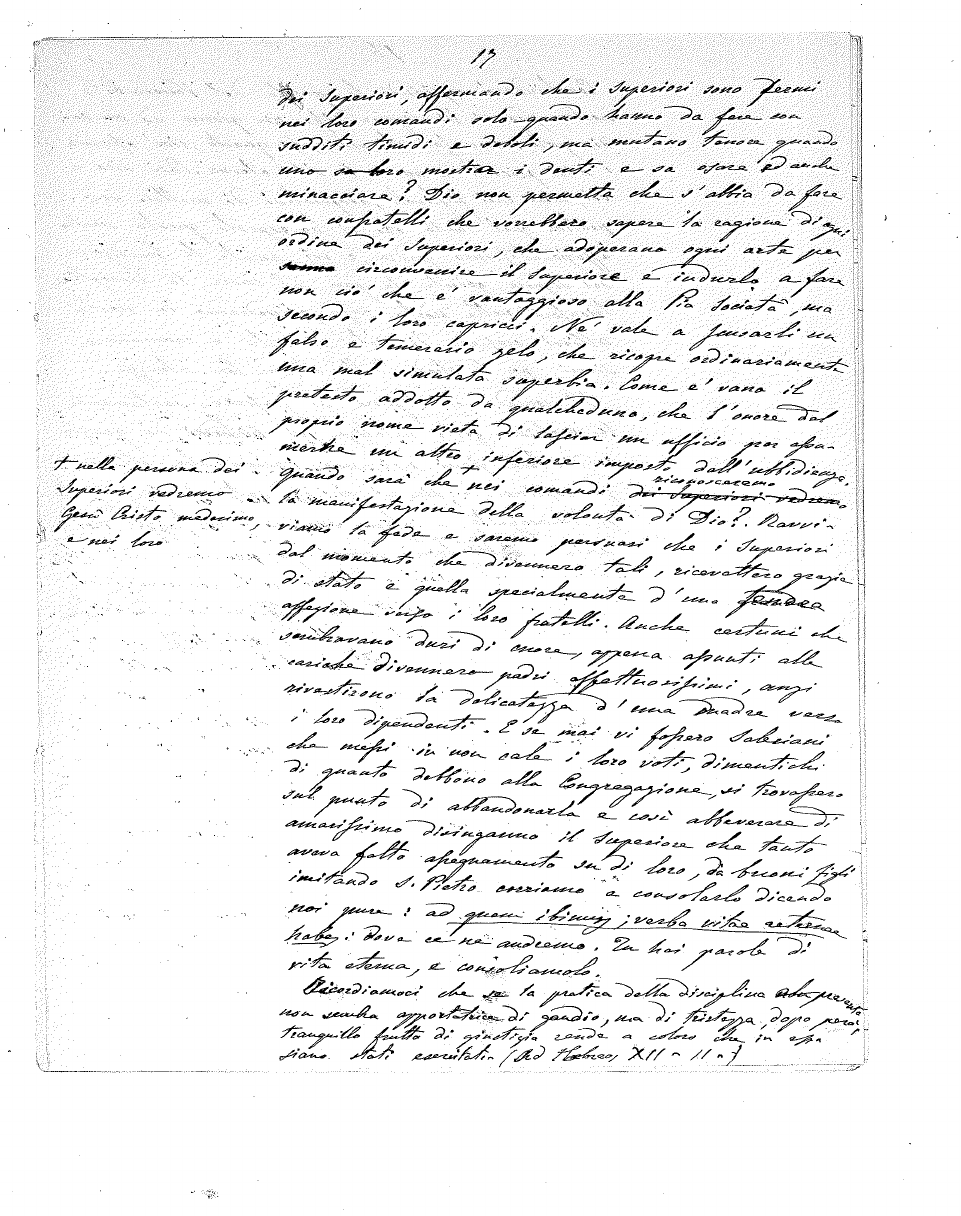 17
dei Superiori, affermando che i Superiori sono fermi
nei loro comandi solo quando hanno da fare con
sudditi timidi e deboli, ma mutano tenore quando
uno sa loro mostrar i denti e sa osare ed anche
minacciare? Dio non permetta che s'abbia da fare
con confratelli che vorrebbero sapere la ragione di ogni
ordine dei Superiori, che adoperano ogni arte per
circonvenire il Superiore e indurlo a fare
non ciò che è vantaggioso alla Pia Società, ma
secondo i loro capricci. Nè vale a scusarli un
falso e temerario zelo, che ricopre ordinariamente
una mal simulata superbia. Come è vano il
pretesto addotto da qualcheduno, che l'onore del
proprio nome vieta di lasciar un ufficio per assu-
mere un altro inferiore imposto dall'ubbidienza.
riconosceremo
quando sarà che + nei comandi dei Superiori vedremo
+ nella persona dei
Superiori vedremo
Gesù Cristo medesimo,
e nei loro
la manifestazione della volontà di Dio? Ravvi-
viamo la fede e saremo persuasi che i Superiori
dal momento che divennero tali, ricevettero grazia
di stato e quella specialmente d'una tenera
affezione verso i loro fratelli. Anche certuni che
sembravano duri di cuore, appena assunti alle
cariche divennero padri affettuosissimi, anzi
rivestirono la delicatezza d'una madre verso
i loro dipendenti. E se mai vi fossero Salesiani
che messi in non cale i loro voti, dimentichi
di quanto debbono alla Congregazione, si trovassero
sul punto di abbandonarla e così abbeverare di
amarissimo disinganno il Superiore che tanto
aveva fatto assegnamento su di loro, da buoni figli
imitando S. Pietro corriamo a consolarlo dicendo
noi pure: ad quem ibimus; verba vitae aeternae
habes: dove ce ne andremo. Tu hai parole di
vita eterna, e consoliamolo.
Ricordiamoci che se la pratica della disciplina presenta
non sembra apportatrice di gaudio, ma di tristezza, dopo però,
tranquillo frutto di giustizia rende a coloro che in essa
siano stati esercitati. (Ad Hebreos XII - 11 -)